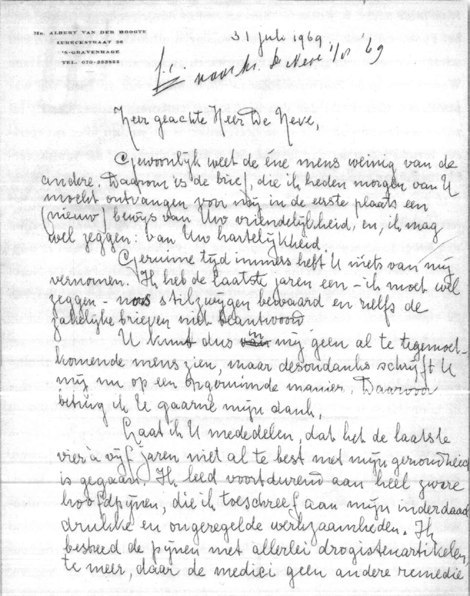 Mr. ALBERT VAN DER HOOGTE
'S-GRAVENHAGE
31 juli 1969
Zeer geachte Heer De Neve,
Gewoonlijk weet de éne mens weinig van de
andere. Daarom is de brief, die ik heden morgen van U
mocht ontvangen voor mij in de eerste plaats een
(nieuw) bewijs van Uw vriendelijkheid, en, ik mag
wel zeggen: van Uw hartelijkheid.
Geruime tijd immers heeft U niets van mij
vernomen. Ik heb de laatste jaren een - ik moet wel
zeggen - stilzwijgen bewaard en zelfs de
zakelijke brieven niet beantwoord
U kunt dus in mij geen al te tegemoet-
komende mens zien, maar desondanks schrijft U
mij nu op een opgeruimde manier. Daarvoor
betuig ik U gaarne mijn dank.
Laat ik U mededelen, dat het de laatste
vier à vijf jaren niet al te best met mijn gezondheid
is gegaan. Ik leed voortdurend aan heel zware
hoofdpijnen, die ik toeschreef aan mijn inderdaad
drukke en ongeregelde werkzaamheden. Ik
bestreed de pijnen met allerlei drogistenartikelen,
te meer, daar de medici geen andere remedie